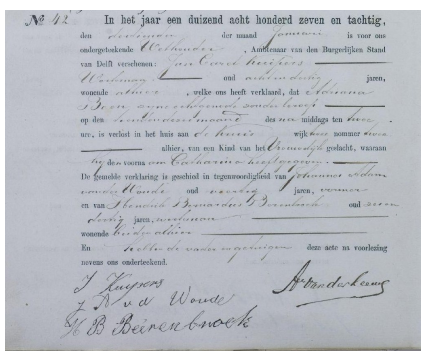 No 42 In het jaar een duizend acht honderd zeven en tachtig,
den dertienden der maand Januari is voor ons
ondergeteekende Wethouder, Ambtenaar van den Burgerlijken Stand
van Delft verschenen: Jan Kuijpers
Werkman oud acht en dertig jaren,
wonende alhier, welke ons heeft verklaard, dat Adriana
op den dezer maand des na middags ten twee
ure, is verlost in het huis aan de wijk nommer
alhier, van een Kind van het Vrouwelijk geslacht, waaraan
hij den voornaam Catharina heeft gegeven.
De gemelde verklaring is geschied in tegenwoordigheid van Johannes Adam
van der Woude oud veertig jaren,
en van Hendrik Bernardus Beerenbroek oud zeven
dertig jaren, werkman
wonende beiden alhier
En hebben de vader en getuigen deze acte na voorlezing
nevens ons onderteekend.
J Kuypers
J A v d Woude
H B Beerenbroek